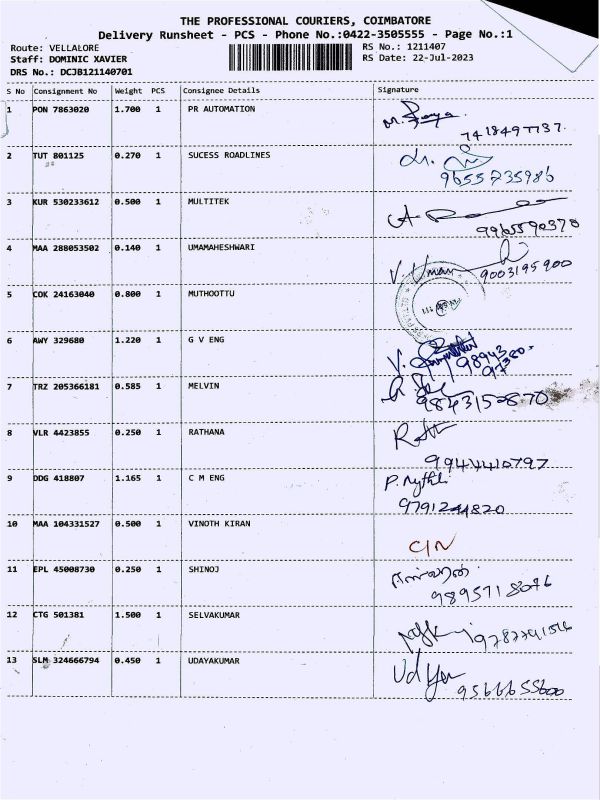 THE PROFESSIONAL COURIERS, COIMBATORE
Delivery Runsheet - PCS - Phone No.:0422-3505555 - Page No.:1
Route: VELLALORE RS No.: 1211407
Staff: DOMINIC XAVIER RS Date: 22-Jul-2023
DRS No.: DCJB121140701
S No Consignment No Weight PCS Consignee Details Signature
1 PON 7863020 1.700 1 PR AUTOMATION
7418497737.
2 TUT 801125 0.270 1 SUCESS ROADLINES
9655735986
3 KUR 530233612 0.500 1 MULTITEK
9965590370
4 MAA 288053502 0.140 1 UMAMAHESHWARI V. Uma
9003195900
5 COK 24163040 0.800 1 MUTHOOTTU
6 AWY 329680 1.220 1 G V ENG
7 TRZ 205366181 0.585 1 MELVIN
9843152870
8 VLR 4423855 0.250 1 RATHANA
9 DDG 418807 1.165 1 C M ENG
9791244820
10 MAA 104331527 0.500 1 VINOTH KIRAN
C/N
11 EPL 45008730 0.250 1 SHINOJ
9895718076
12 CTG 501381 1.500 1 SELVAKUMAR
13 SLM 324666794 0.450 1 UDAYAKUMAR Udya
9566655600